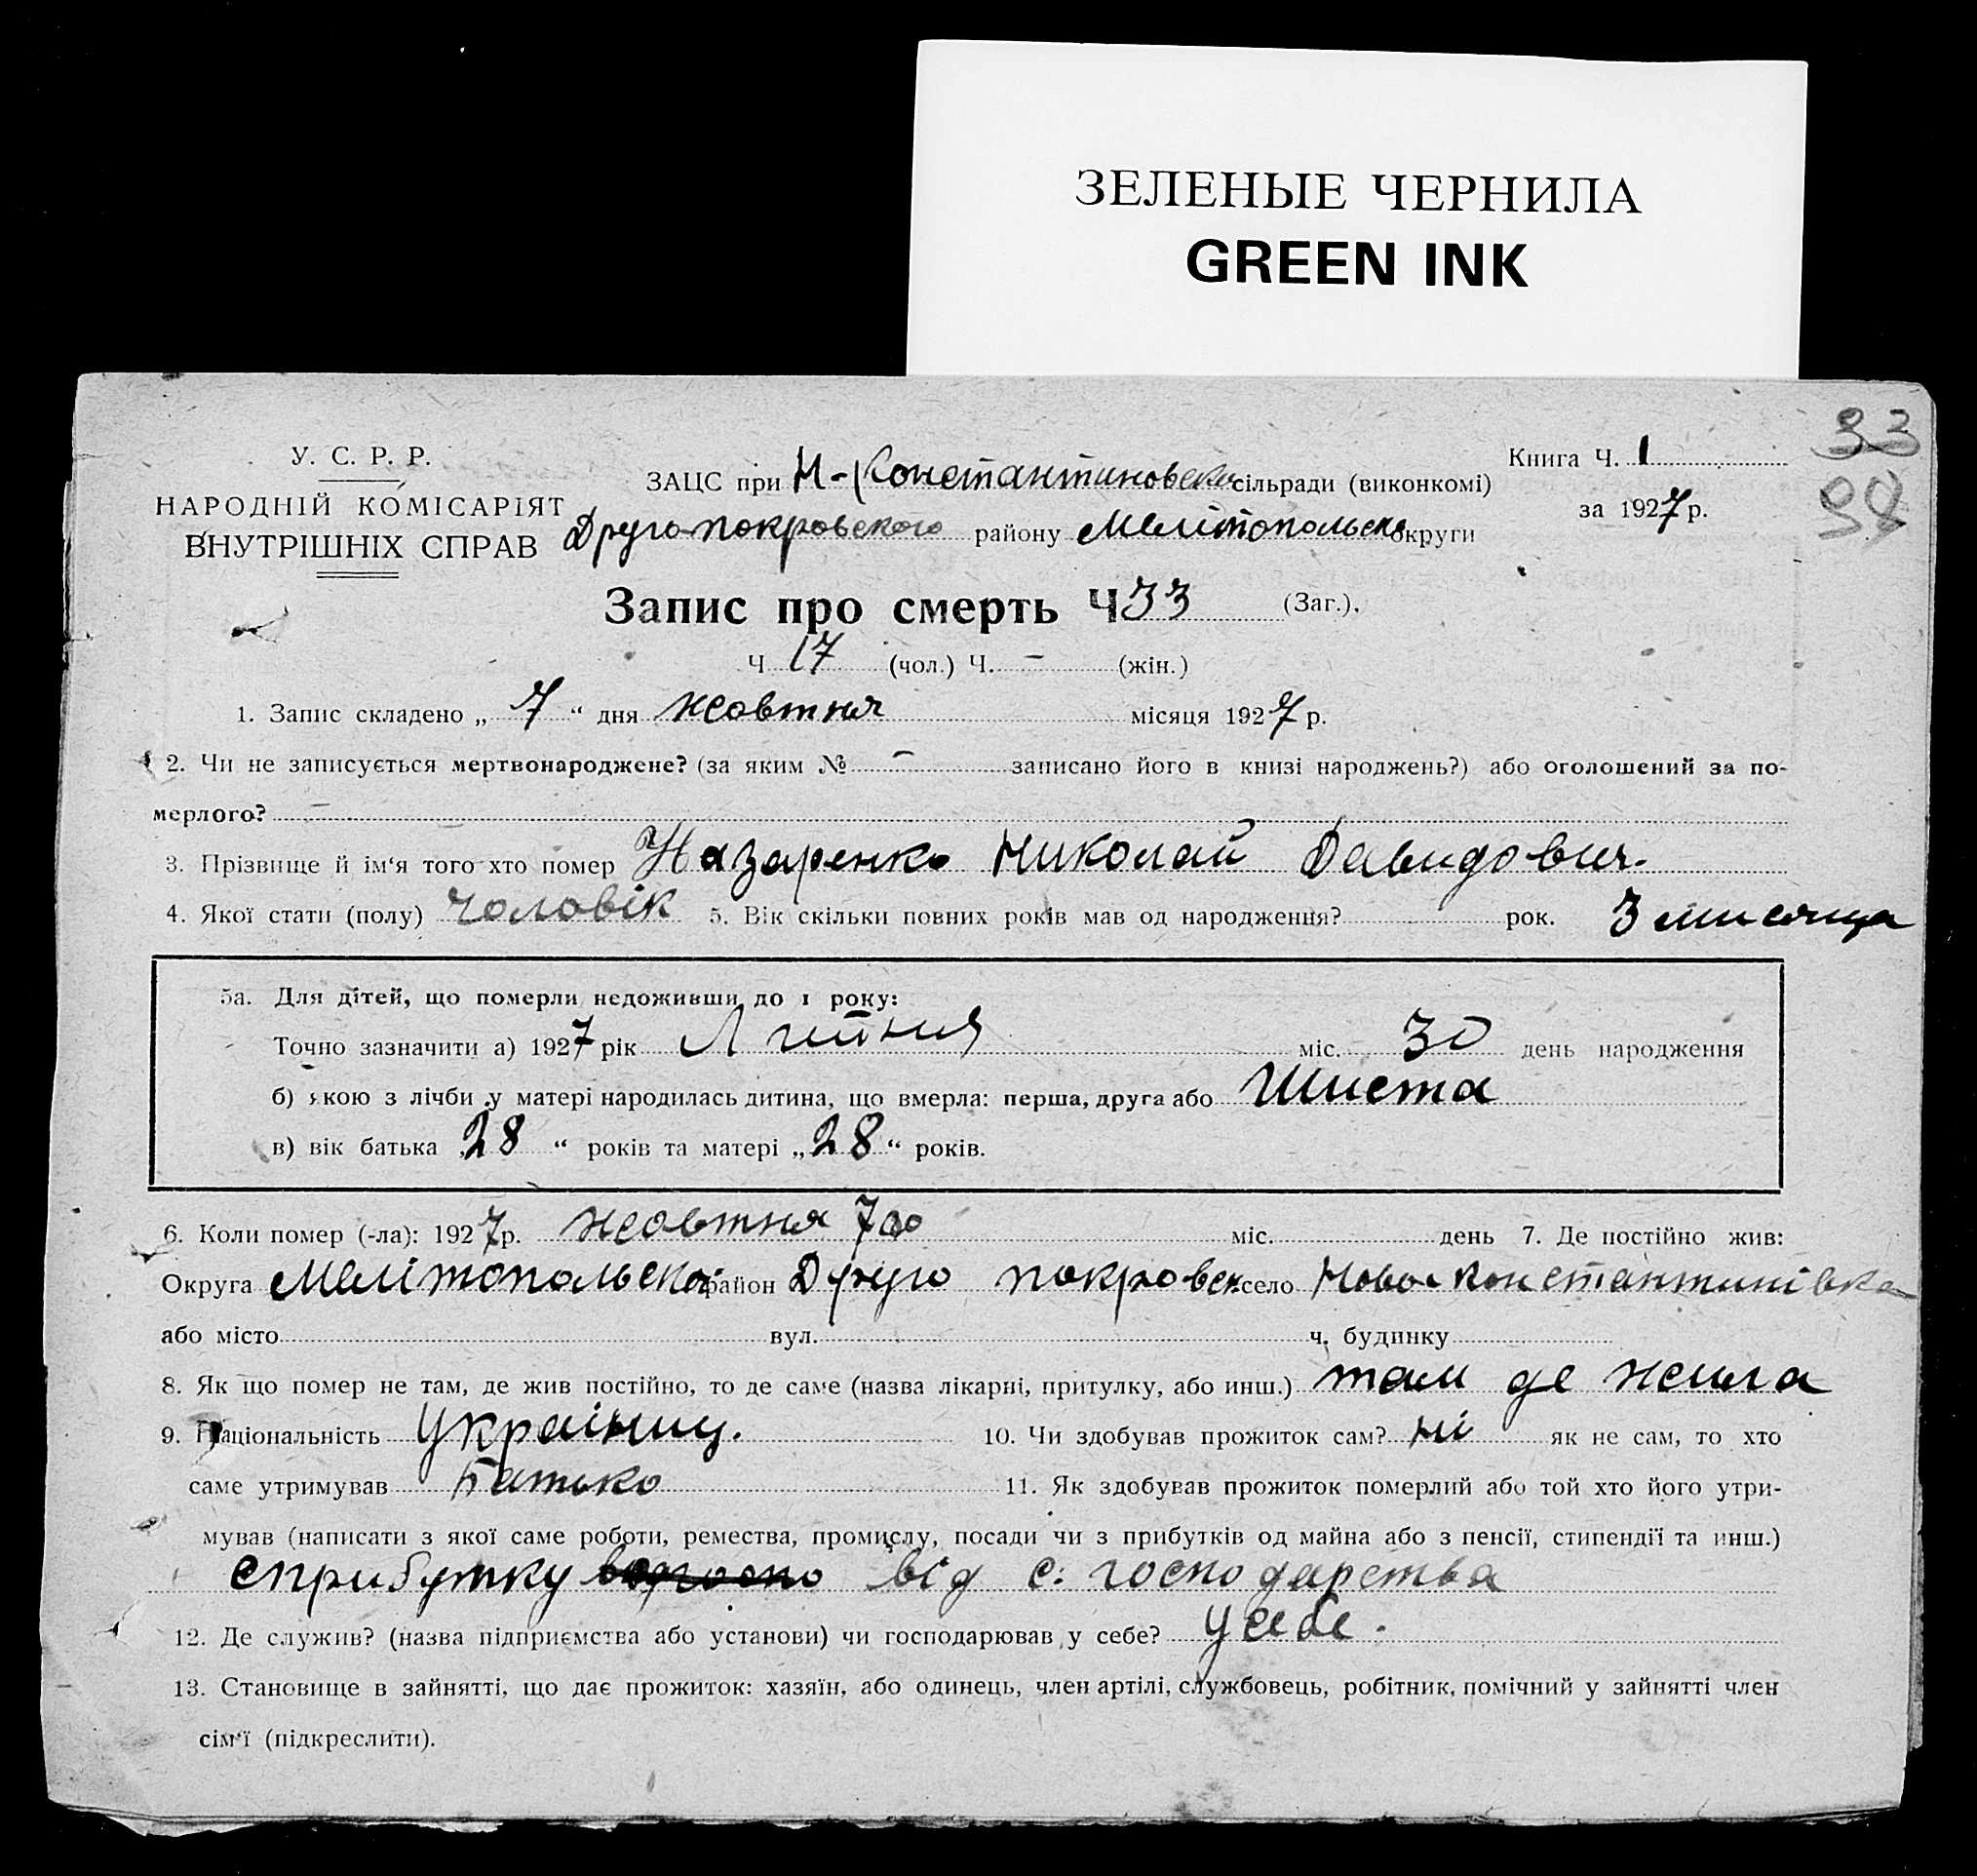 ЗЕЛЕНЫЕ ЧЕРНИЛА
GREEN INK
33
98
У. С. Р. Р.
НАРОДНІЙ КОМІСАРІЯТ
ВНУТРІШНІХ СПРАВ
ЗАЦС при Н-Константиновской сільради (виконкомі)
Друго-покровского району Мелітопольск округи
Книга Ч. 1
за 1927 р.
Запис про смерть Ч 33 (Заг.).
Ч 17 (чол.) Ч. – (жін.)
1. Запис складено „ 7 “ дня жовтня місяця 1927 р.
2. Чи не записується мертвонароджене? (за яким № – записано його в книзі народжень?) або оголошений за по-
мерлого? –
3. Прізвище й ім‘я того хто помер Назаренко Николай Давидович.
4. Якої стати (полу) чоловік 5. Вік скільки повних років мав од народження? рок. 3 мисяца
5а. Для дітей, що померли недоживши до 1 року:
Точно зазначити а) 1927 рік міс. 30 день народження
б) якою з лічби у матері народилась дитина, що вмерла: перша, друга або Шиста
в) вік батька „28“ років та матері „28“ років.
6. Коли помер (-ла): 1927 р. жовтня 7го міс. день 7. Де постійно жив:
Округа Мелітопольска район Друго покровск. село Ново-константинівка
або місто вул. ч. будинку
8. Як що помер не там, де жив постійно, то де саме (назва лікарні, притулку, або инш.) там де жила
9. Національність Українец. 10. Чи здобував прожиток сам? ні як не сам, то хто
саме утримував Батько 11. Як здобував прожиток померлий або той хто його утри-
мував (написати з якої саме роботи, ремества, промислу, посади чи з прибутків од майна або з пенсії, стипендії та инш.)
сприбутку від с. господарства
12. Де служив? (назва підприємства або установи) чи господарював у себе? у себе.
13. Становище в зайнятті, що дає прожиток: хазяїн, або одинець, член артілі, службовець, робітник, помічний у зайнятті член
сім‘ї (підкреслити).